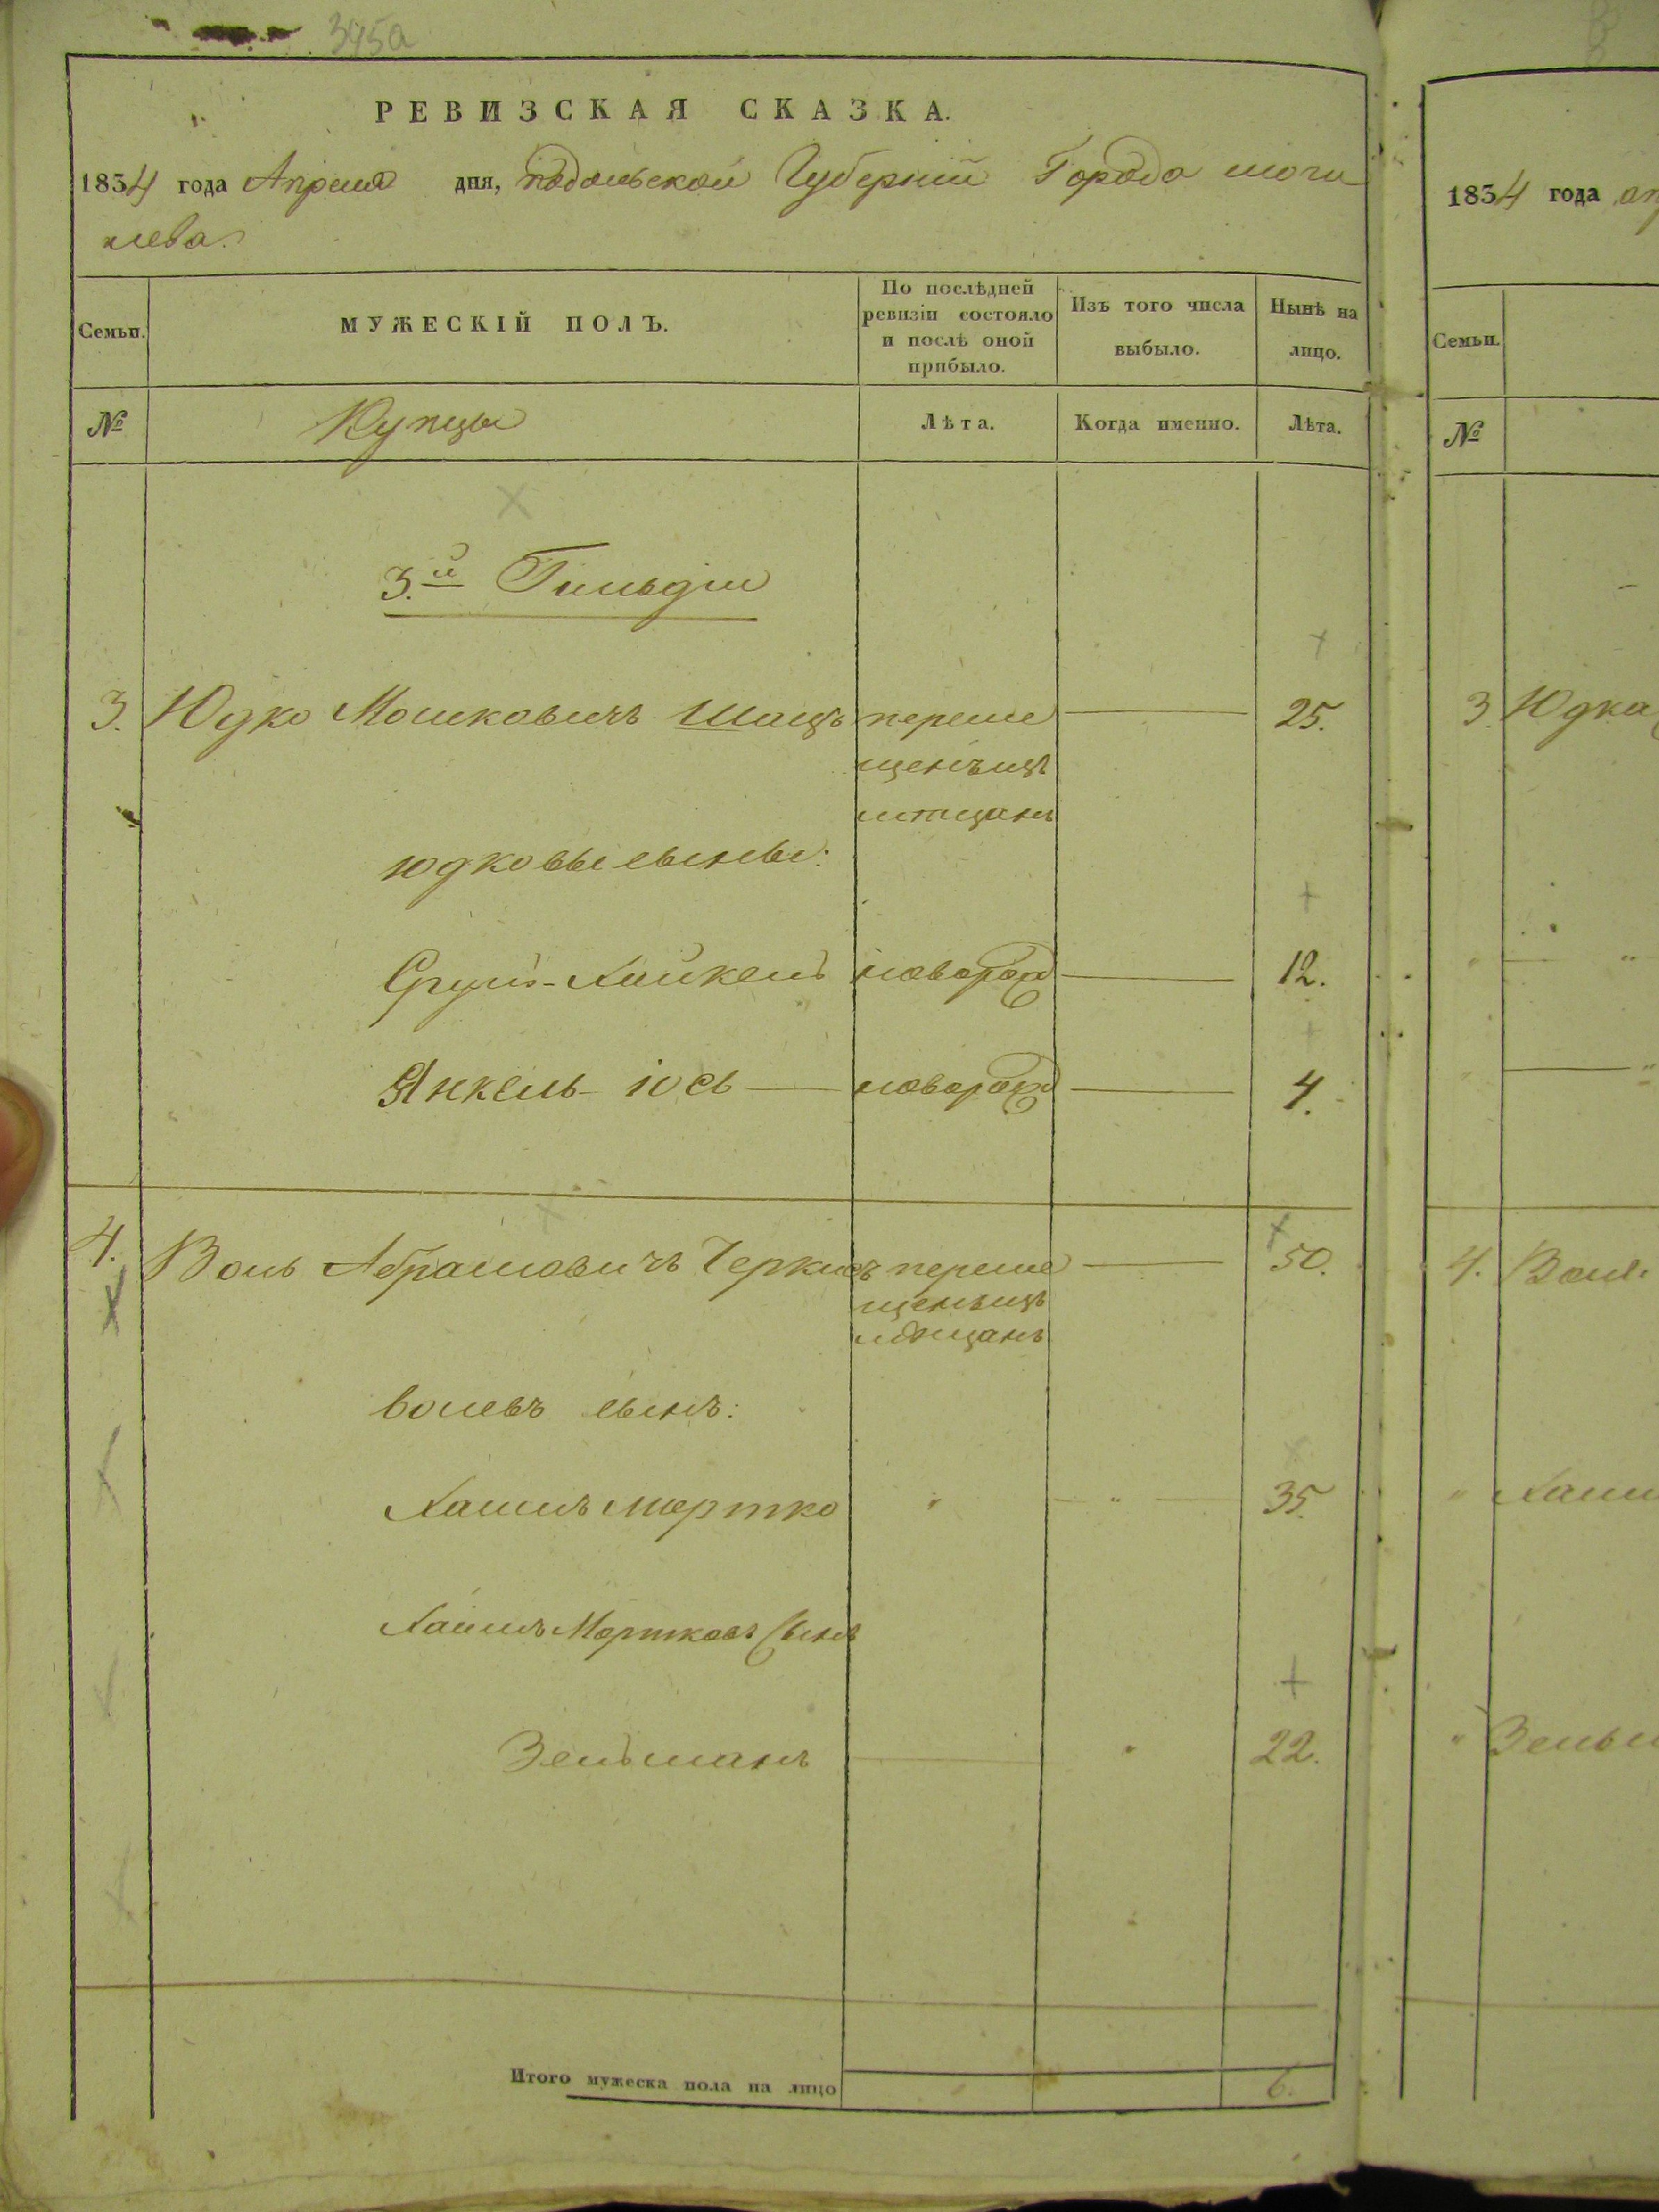 345а
РЕВИЗСКАЯ СКАЗКА.
1834 года Апреля дня, подольской Губерний Города моги
лева.
Семьи. МУЖЕСКІЙ ПОЛЪ. По послѣдней ревизіи состояло и послѣ оной прибыло. Изъ того числа выбыло. Нынѣ на лицо.
№ Купцы Лѣта. Когда именно. Лѣта.
3.й Гильдіи
3. Юдко Мошковичъ Шацъ переме 25.
щенъизъ
мещанъ
юдковы сыновья:
Хайкель новорож 12.
Янкель-юсь новорож 4.
4. Воль Абрамовичъ Черкисъ переме 50.
щенъизъ
мѣщанъ
волевъ сынъ:
Хаимъ мортко " " 35.
Хаимъ Мортковъ Сынъ
Зельманъ " 22.
Итого мужеска пола на лицо 6.
1834 года ап
Семьи.
№
3 Юдка
4. Воля
" Хаим
" Зельм